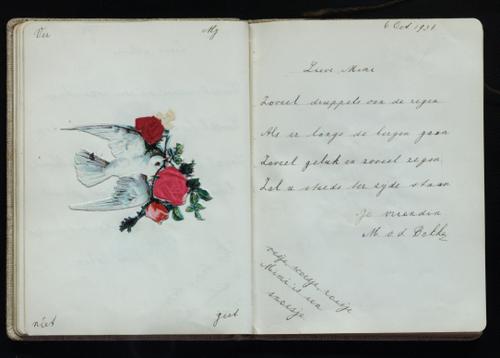 Ver
Mij
niet
geet
6 Oct 1931
Lieve Mimi
Zoveel druppels van de regen
Als er langs de bergen gaan
Zooveel geluk en zooveel zegen
Zal u steeds ter zyde staan
Je vriendin
M. v. d.
rosje
Mimi is een
snoesje